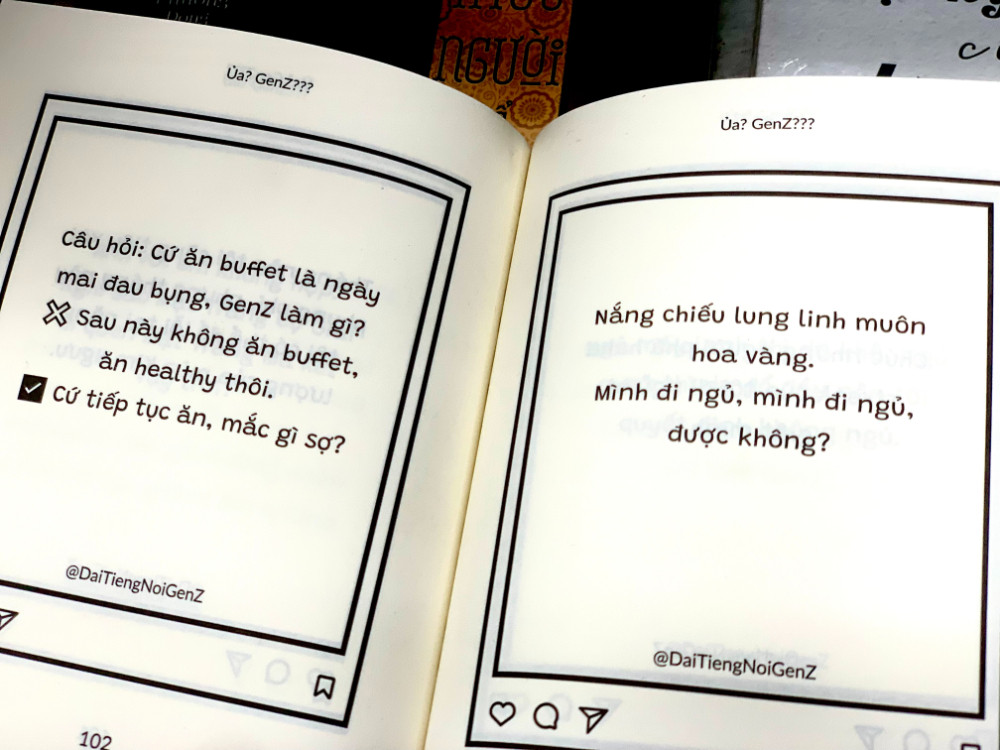 NGƯỜI
Ủa? GenZ???
Câu hỏi: Cứ ăn buffet là ngày
mai đau bụng, GenZ làm gì?
Sau này không ăn buffet,
ăn healthy thôi.
Cứ tiếp tục ăn, mắc gì sợ?
@DaiTiengNoiGenZ
102
Ủa? GenZ???
Nắng chiếu lung linh muôn
hoa vàng.
Mình đi ngủ, mình đi ngủ,
được không?
@DaiTiengNoiGenZ